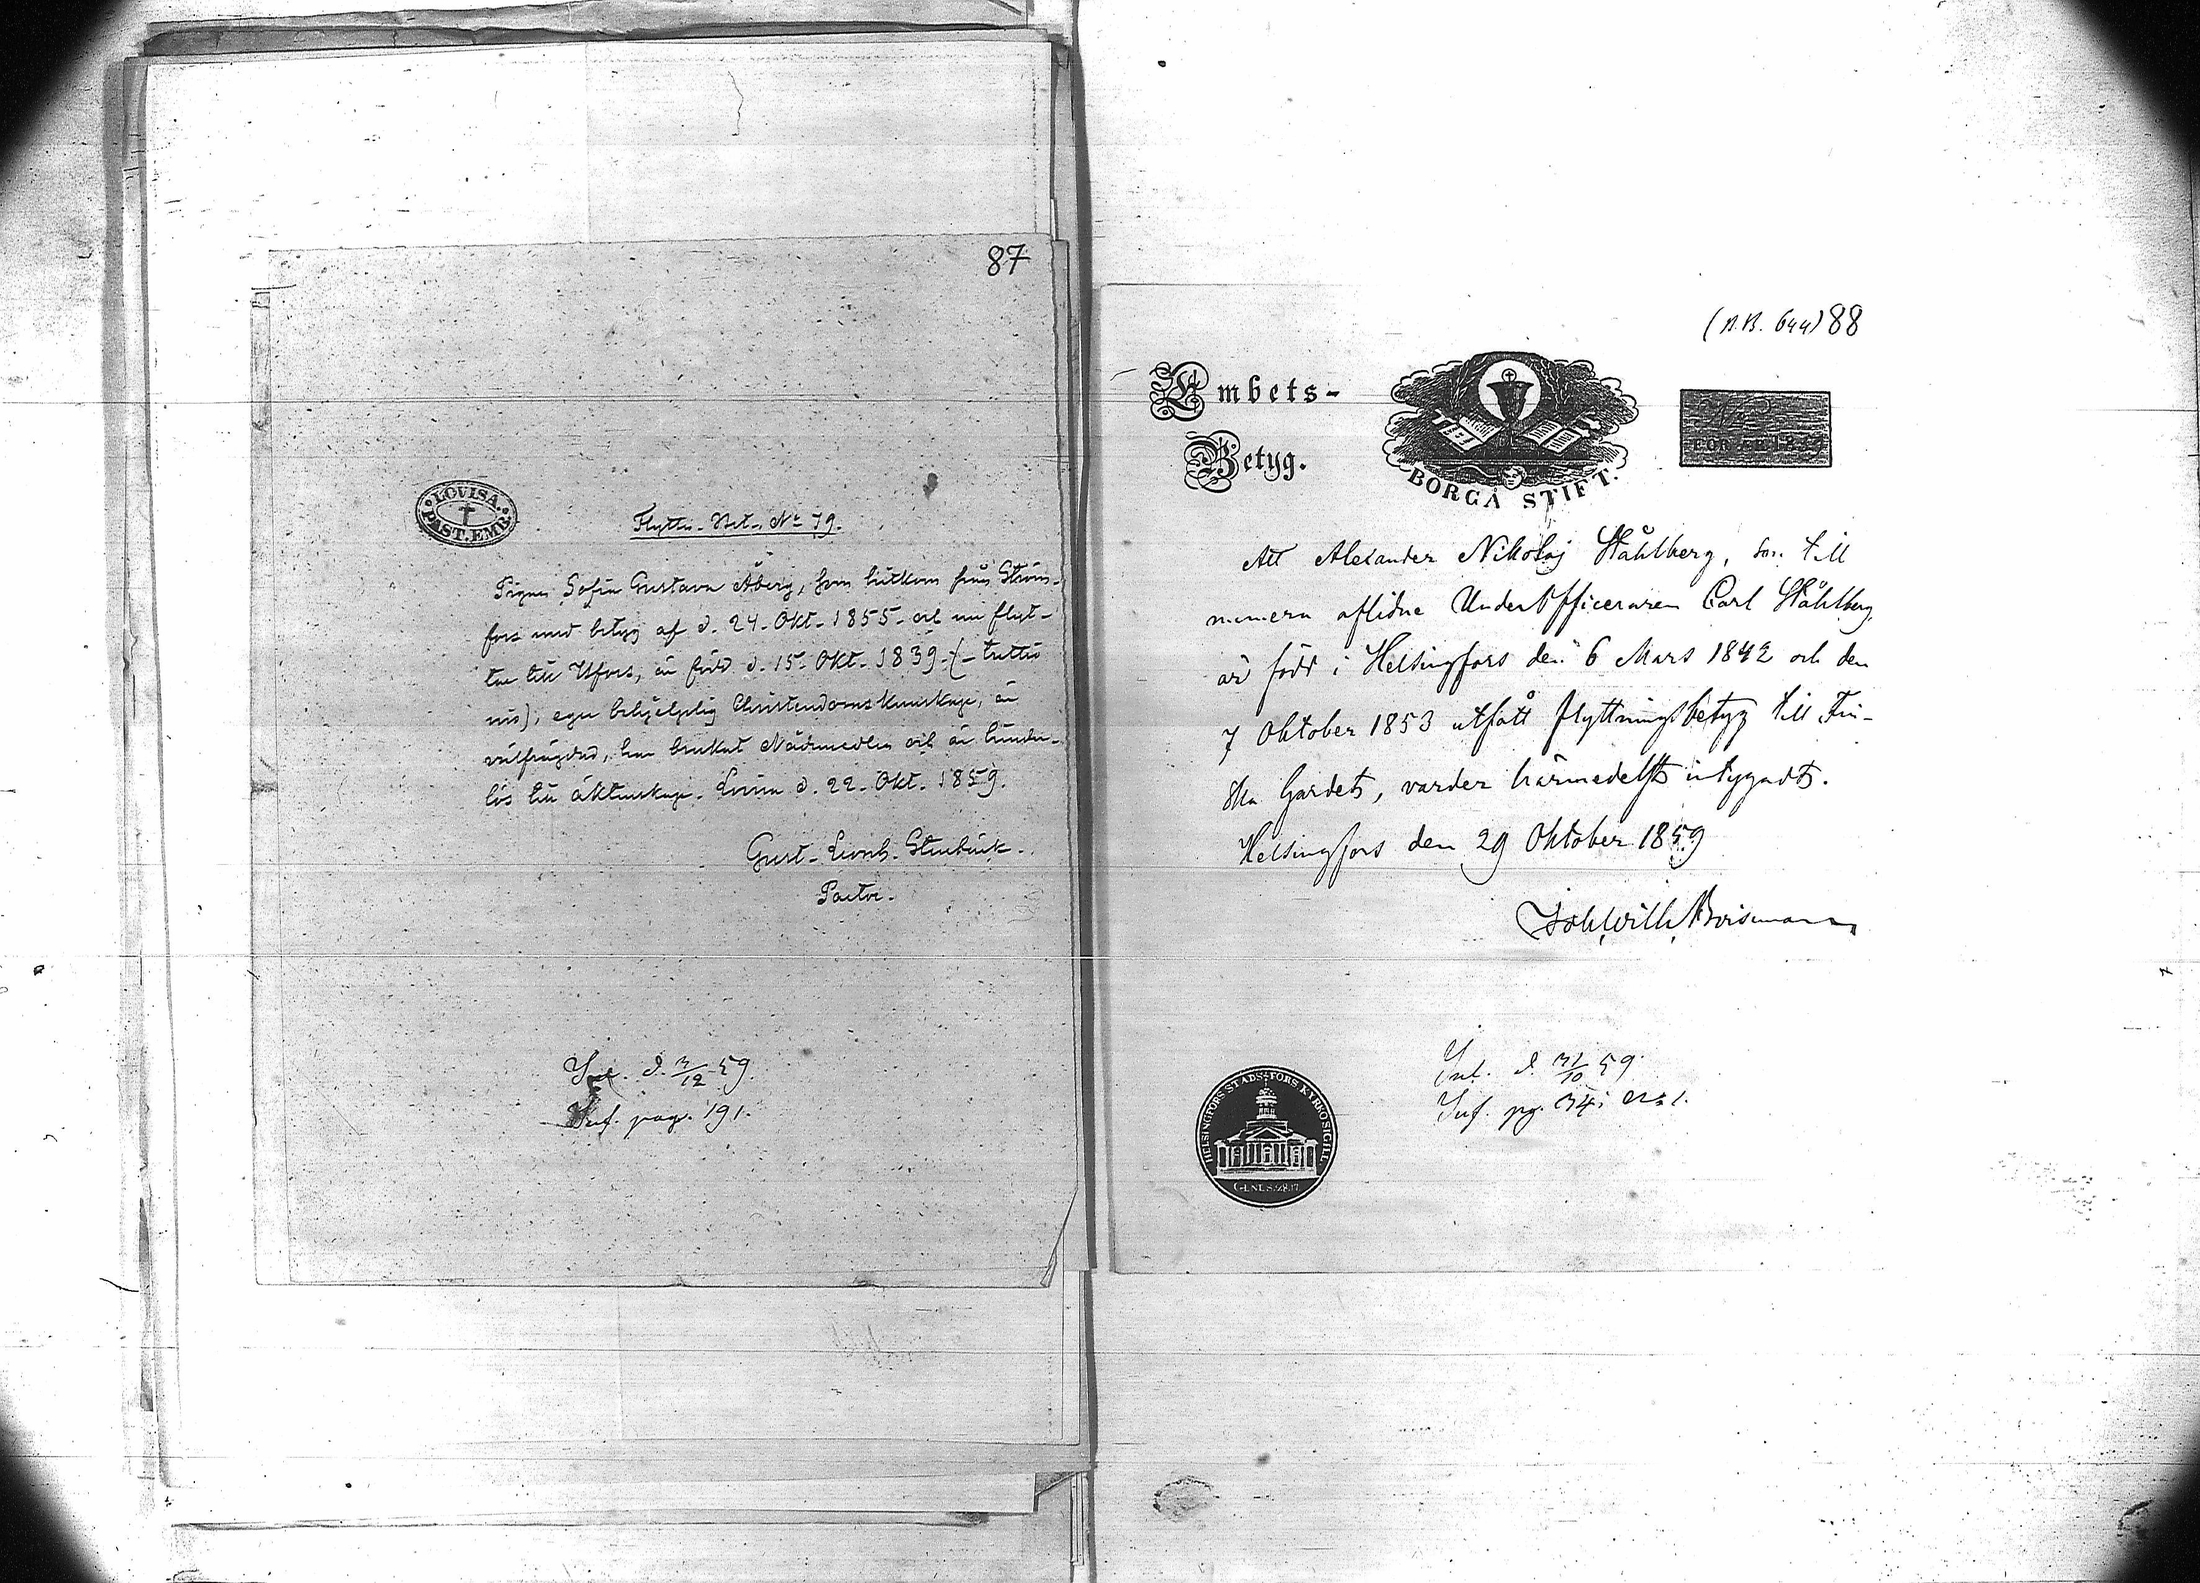 87
LOVISA.
PAST. EMB.
Flyttn. Bet. No 79.
Pigan Sofia Gustava Åberg, som hitkom från Ström-
fors med betyg af d. 24. Okt. 1855. och nu flyt-
tar till Hfors, är född d. 15. Okt. 1839. (- trettio
nio), eger behjelplig Christendomskunskap, är
välfrägdad, har brukat Nådmedlen och är hinder-
lös till äktenskap. Lovisa d. 22. Okt. 1859.
Gust. Stenbäck.
Pastor.
Inl. d. 3/12 59.
Inf. pag. 191.
(N.B. 644) 88
Embets-
Betyg.
BORGÅ STIFT.
FÖR ÅR
Att Alexander Nikolaj Ståhlberg, son till
numera aflidne UnderOfficeraren Carl Ståhlberg,
är född i Helsingfors den 6 Mars 1842 och den
7 Oktober 1853 utfått flyttningsbetyg till Fin-
ska Gardet, varder härmedelst intygadt.
Helsingfors den 29 Oktober 1859
Joh. Wilh. Boisman
Inl. d. 31/10 59.
Inf. pg. 34;
HELSINGFORS STADS-FÖRS. KYRKOSIGILL.
GENES. 28.17.